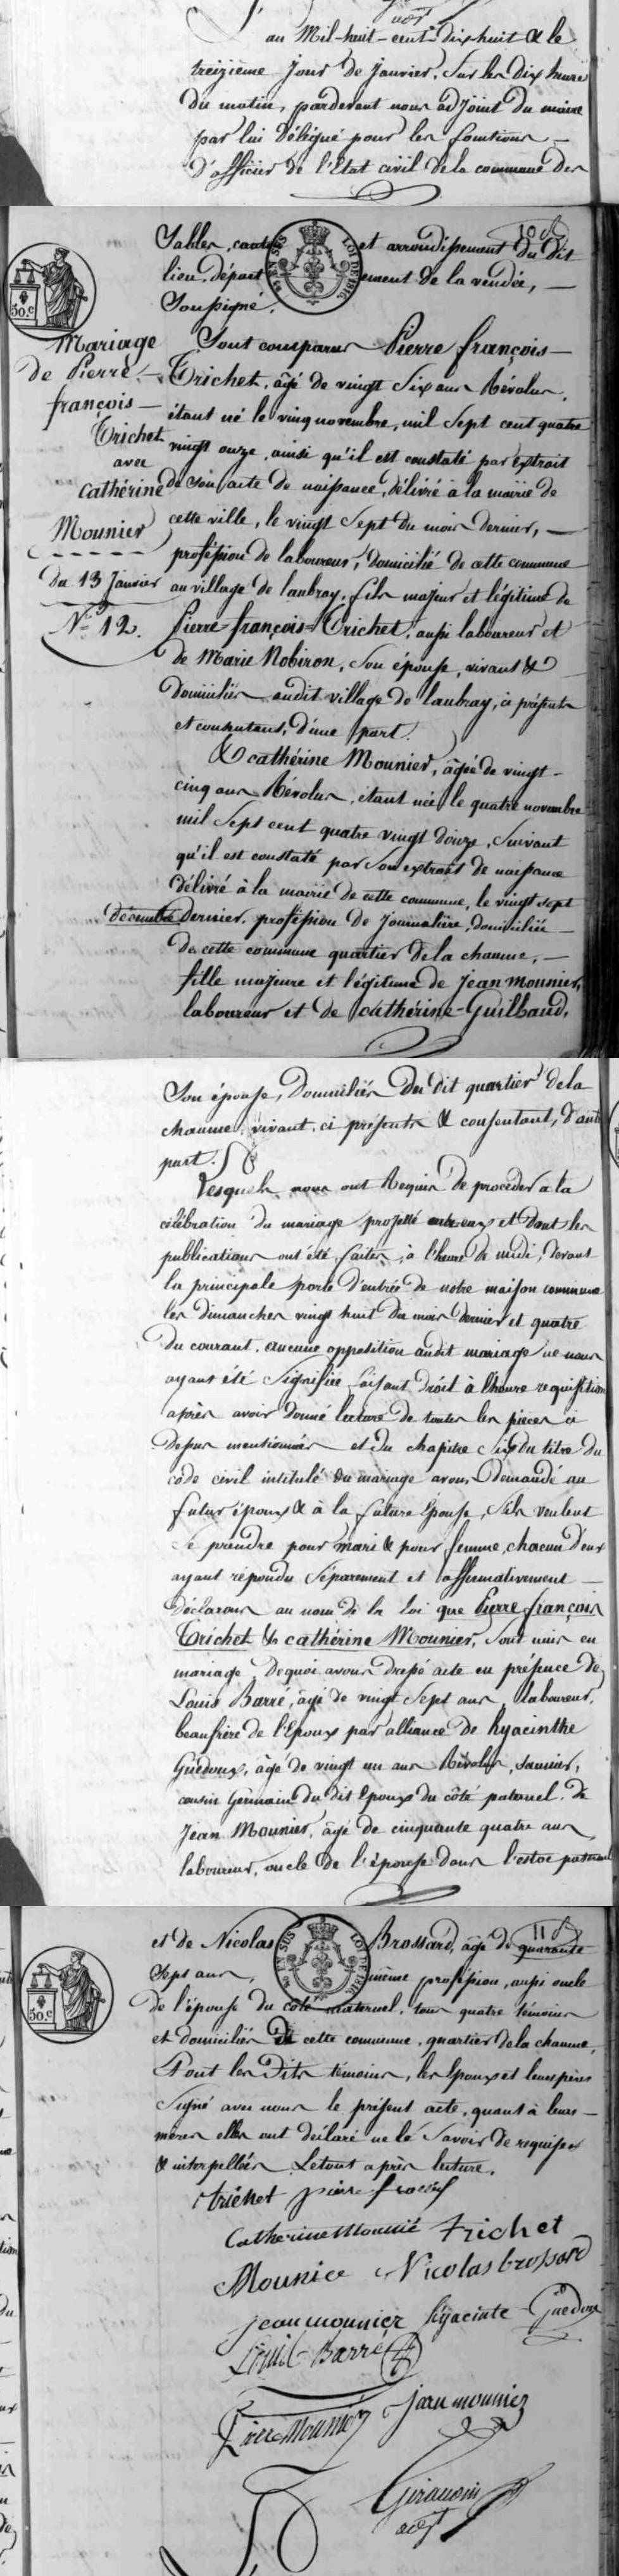 au Mil-huit-cent-dix-huit & le
treizième Jour de Janvier, Sur les Dix heures
du matin, pardevant nous adjoint du maire
par lui délégué pour les fonctions
d'officier de l'Etat civil de la commune des
10
Sables, canton et arrondissement du dit
lieu, département de la vendée,
Soussigné.
50.c
Mariage
de Pierre
françois
Trichet
avec
Cathérine
Mounier
du 13 Janvier
N.º 12.
Sont comparus Pierre françois
Trichet, âgé de vingt Six ans Révolus,
étant né le vingt novembre, mil Sept cent quatre
vingt onze, ainsi qu'il est constaté par extrait
de son acte de naissance, délivré à la mairie de
cette ville, le vingt Sept du mois dernier,
profession de laboureur, domicilié de cette commune
au village de laubray, fils majeur et légitime de
Pierre-françois-Trichet, aussi laboureur et
de Marie Nobiron, Son épouse, vivants &
domiciliés audit village de laubray, ci présents
et consentans, d'une part.
& cathérine Mounier, âgée de vingt
cinq ans Révolus, étant née le quatre novembre
mil Sept cent quatre vingt douze, Suivant
qu'il est constaté par Son extrait de naissance
délivré à la mairie de cette commune, le vingt sept
décembre Dernier, profession de Journalière, domiciliée
de cette commune quartier de la chaume,
fille majeure et légitime de Jean Mounier,
laboureur et de Cathérine-Guilbaud,
Son épouse, Domiciliés du dit quartier de la
chaume, vivant, ci présents & consentant, d'autre
part.
Lesquels nous ont Requis de procéder a la
célébration du mariage projetté entre eux et Dont les
publications ont été faites, à l'heure de midi, devant
la principale porte d'entrée de notre maison commune
les dimanches vingt huit du mois dernier et quatre
du courant. aucune opposition audit mariage ne nous
ayant été Signifiée, faisant Droit à l'heure requisition
après avoir Donné lecture de toutes les pièces ci
Dessus mentionnées et du chapitre Six du titre du
code civil intitulé du mariage avons Demandé au
futur époux & à la future Epouse, S'ils veulent
Se prendre pour mari & pour femme, chacun d'eux
ayant répondu Séparement et affirmativement
Déclarons au nom de la loi que Pierre françois
Trichet & cathérine Mounier, Sont unis en
mariage. De quoi avons Dressé acte en présence de
Louis Barré, âgé de vingt Sept ans, laboureur,
beaufrère de l'Epoux par alliance de hyacinthe
Guédoux, âgé de vingt un ans Révolus, saunier,
cousin Germain du dit Epoux du côté paternel. de
Jean Mounier, âgé de cinquante quatre ans,
laboureur, oncle de l'épouse dans l'estoc paternel
11
50.c
et de Nicolas Brossard, âgé de quarante
Sept ans, même profession, aussi oncle
de l'épouse du côté maternel, tous quatre témoins
et domiciliés de cette commune, quartier de la chaume,
Dont les Dits témoins, les Epoux et leurs pères
Signé avec nous le présent acte, quant à leurs
mères elles ont déclaré ne le Savoir de requises
& interpellées. Le tout après lecture.
trichet pierre
Catherine Mounié Trichet
Mounier Nicolas brossard
jean mounier hyacinte Guedoux
Louis Barré
jean mounier
Mounier